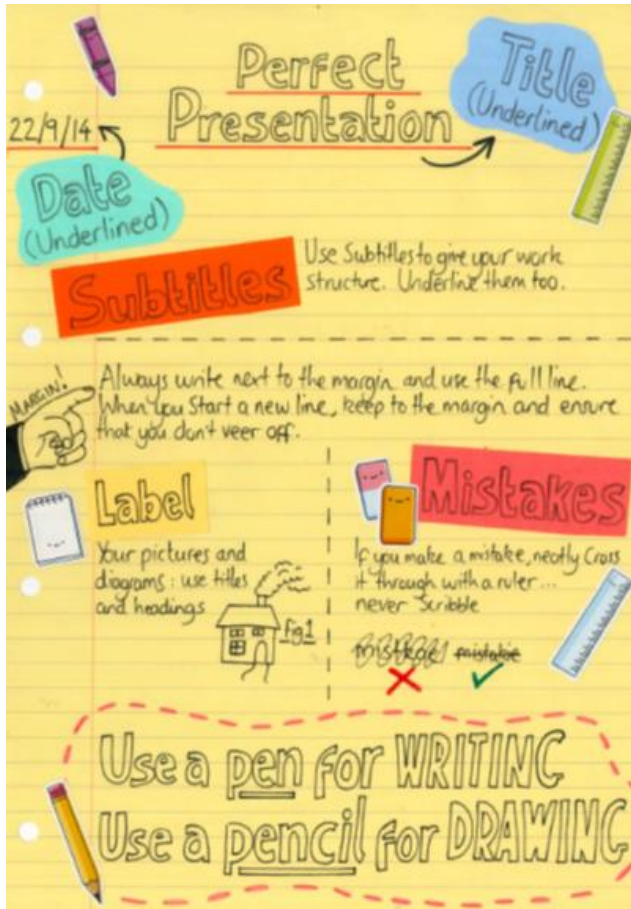 Perfect
Presentation
Title
(Underlined)
22/9/14
Date
(Underlined)
Subtitles
Use Subtitles to give your work
structure. Underline them too.
MARGIN!
Always write next to the margin and use the full line.
When you Start a new line, keep to the margin and ensure
that you don't veer off.
Label
Your pictures and
diagrams: use titles
and headings
fig 1
Mistakes
If you make a mistake, neatly Cross
it through with a ruler...
never Scribble
mistkae mistake
Use a pen for WRITING
Use a pencil for DRAWING